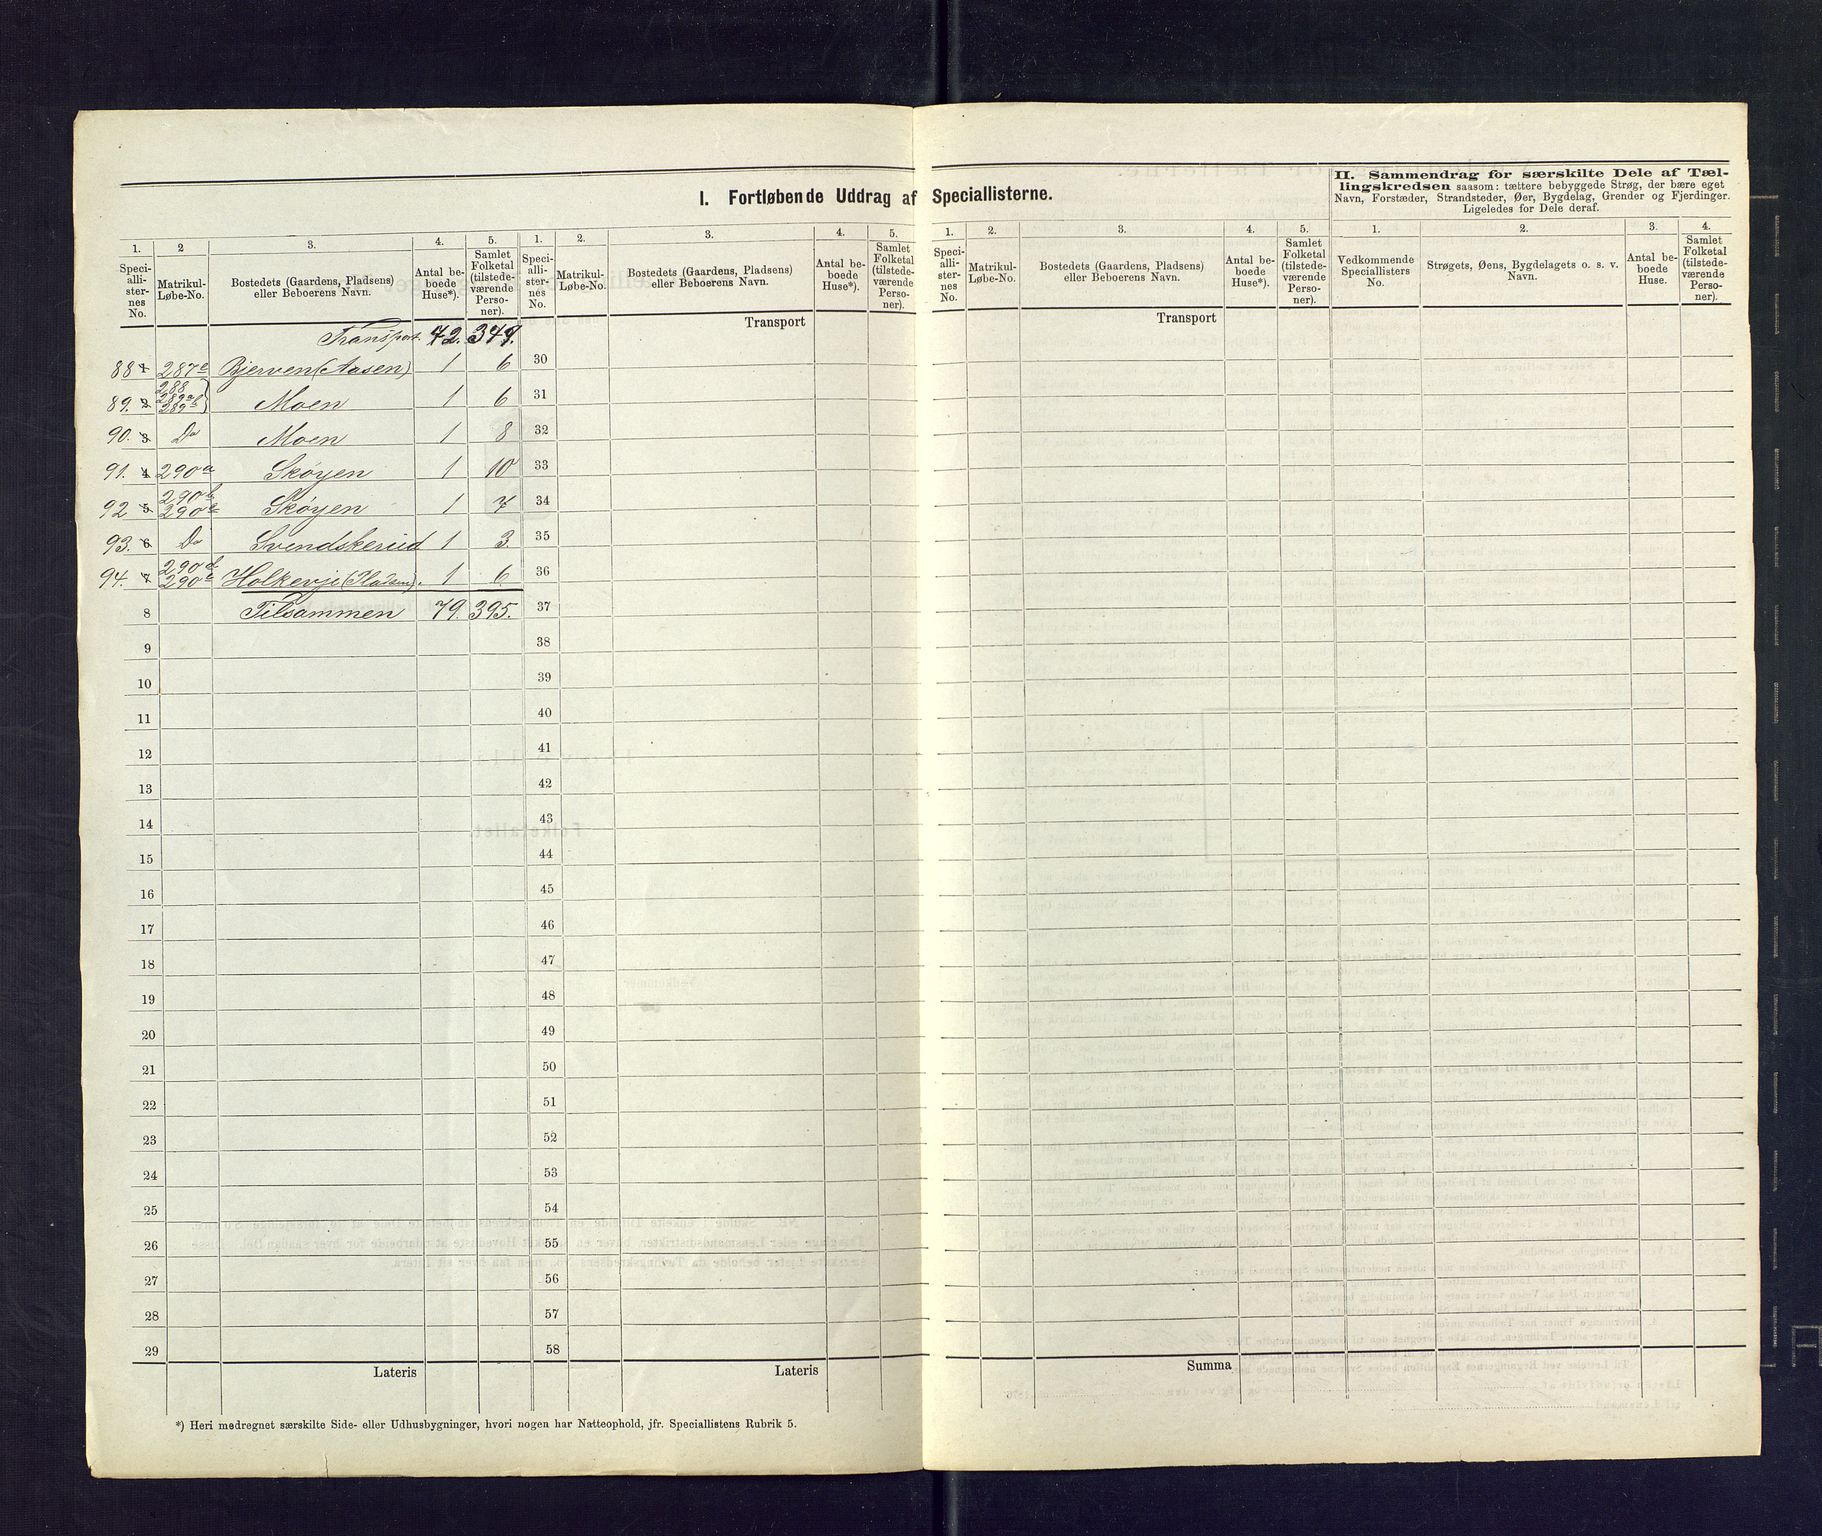 I. Fortløbende Uddrag af Speciallisterne.
II. Sammendrag for særskilte Dele af Tæl-
lingskredsen saasom: tættere bebyggede Strøg, der bære eget
Navn, Forstæder, Strandsteder, Øer, Bygdelag, Grender og Fjerdinger.
Ligeledes for Dele deraf.
1. 2 3. 4. 5.
Speci-alli-ster-nes No. Matrikul-Løbe-No. Bostedets (Gaardens, Pladsens) eller Beboerens Navn. Antal be-boede Huse*). Samlet Folketal (tilstede-værende Perso-ner).
1. 2. 3. 4. 5.
Speci-alli-ster-nes No. Matrikul-Løbe-No. Bostedets (Gaardens, Pladsens) eller Beboerens Navn. Antal be-boede Huse*). Samlet Folketal (tilstede-værende Perso-ner).
1. 2. 3. 4. 5.
Speci-alli-ster-nes No. Matrikul-Løbe-No. Bostedets (Gaardens, Pladsens) eller Beboerens Navn. Antal be-boede Huse*). Samlet Folketal (tilstede-værende Perso-ner).
1. 2. 3. 4.
Vedkommende Speciallisters No. Strøgets, Øens, Bygdelagets o. s. v. Navn. Antal be-boede Huse. Samlet Folketal (tilstede-værende Perso-ner).
Transport. 72. 349. Transport Transport
88 1 287c Bjerven (Aasen) 1 6 30
89. 2 288 289a 289b Moen 1 6 31
90. 3 Do Moen 1 8 32
91. 4 290a Skøyen 1 10 33
92 5 290b 290c Skøyen 1 7 34
93. 6 Do Svendskerud 1 3. 35
94. 7 290d 290e Holkevje (Pladsen). 1 6. 36
8 Tilsammen 79. 395. 37
9 38
10 39
11 40
12 41
13 42
14 43
15 44
16 45
17 46
18 47
19 48
20 49
21 50
22 51
23 52
24 53
25 54
26 55
27 56
28 57
29 58
Lateris Lateris Summa
*) Heri medregnet særskilte Side- eller Udhusbygninger, hvori nogen har Natteophold, jfr. Speciallistens Rubrik 5.